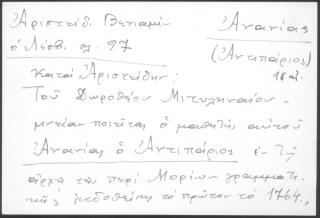 Ἀριστείδ. Βενιαμὶν
Ἀνανίας
ὁ Λέσβ. σλ. 97
(Ἀντιπάριος)
18 αἰ.
Κατὰ Ἀριστείδην:
Τοῦ Δωροθέου Μιτυληναίου
μνείαν ποιεῖται ὁ μαθητὴς αὐτοῦ
Ἀνανίας ὁ Ἀντιπάριος ἐν τῇ
ἀρχῇ τῆς περὶ Μορίων γραμματι-
κῆς ἐκδοθείσης τὸ πρῶτον τὸ 1764,